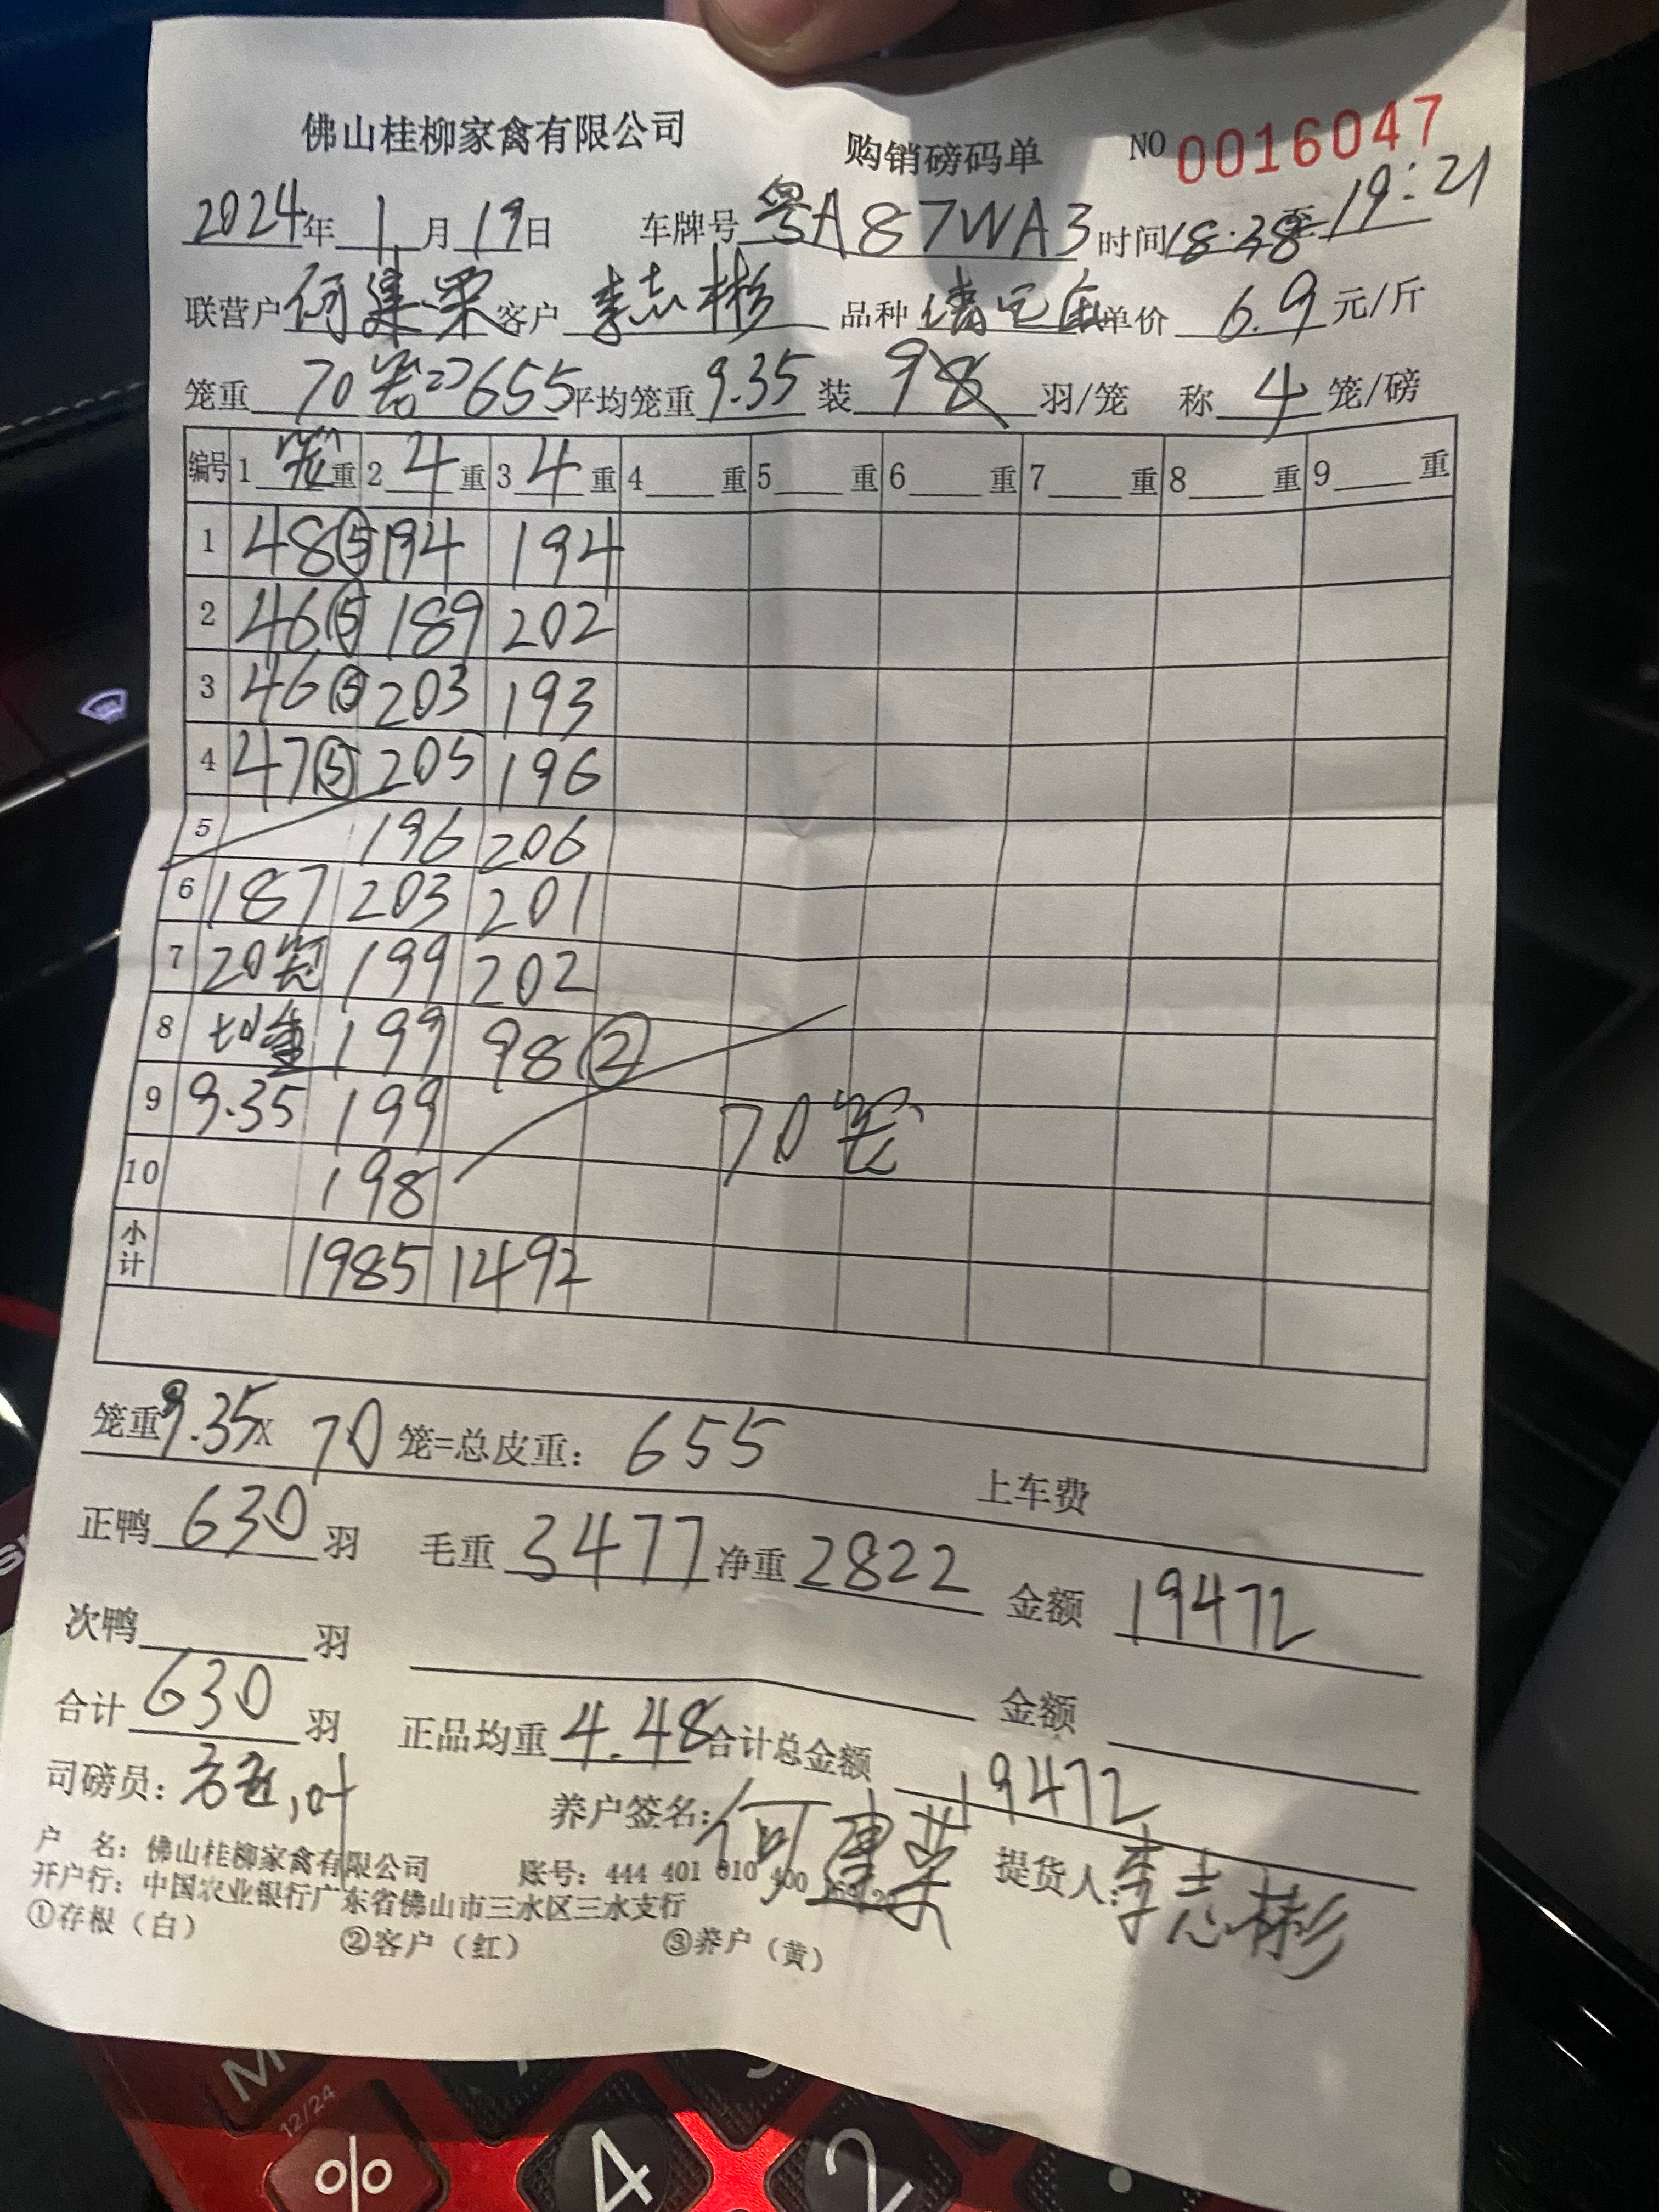 佛山桂柳家禽有限公司 购销磅码单 NO 0016047
2024年1月19日 车牌号粤A87WA3 时间18:38至19:21
联营户何建荣 客户李志彬 品种 单价6.9元/斤
笼重70笼=655 平均笼重9.35 装9羽/笼 称4笼/磅
编号 1笼重 2 4重 3 4重 4 重 5 重 6 重 7 重 8 重 9 重
1 48⑤ 194 194
2 46⑤ 189 202
3 46⑤ 203 193
4 47⑤ 205 196
5 196 206
6 187 203 201
7 20笼 199 202
8 均重 199 98②
9 9.35 199 70笼
10 198
小计 1985 1492
笼重9.35X70笼=总皮重:655 上车费
正鸭630羽 毛重3477 净重2822 金额19472
次鸭 羽 金额
合计630羽 正品均重4.48 合计总金额19472
司磅员: 养户签名:何建荣 提货人:李志彬
户 名:佛山桂柳家禽有限公司 账号:444 401 010 400
开户行:中国农业银行广东省佛山市三水区三水支行
①存根(白) ②客户(红) ③养户(黄)
M 12/24
% 4 2